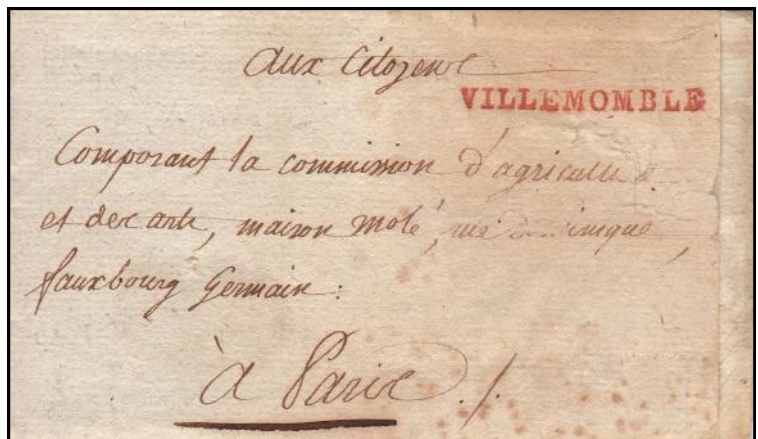 Aux Citoyens
VILLEMOMBLE
Composant la commission d'agriculture
et des arts, maison molé, rue
fauxbourg Germain :
à Paris ./.